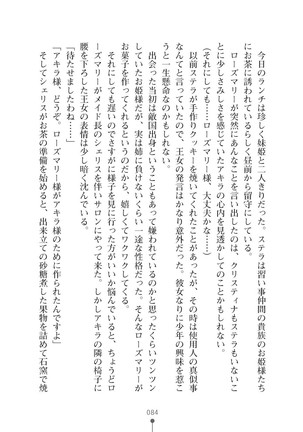 今日のランチは珍しく妹姫と二人きりだった。ステラは習い事仲間の貴族のお姫様たち
にお茶に誘われているらしく昼前から留守にしている。
ローズマリーが突然にあんなことを言い出したのは、クリスティナもステラもいないこ
とに少しさみしさを感じていたアキラの心内を見透かしてのことかもしれない。
（それにしても……ローズマリー様、大丈夫かな……）
以前ステラが手作りクッキーを焼いてくれたことがあったが、その時は使用人の真似事
なんてと言っていたので、王女の発言はかなり意外だった。彼女なりに少年の興味を惹こ
うと一生懸命なのかもしれない。
出会った当初は敵国出身ということもあって嫌われているのかと思ったくらいツンツン
していたお姫様だが、実は嘘に負けないくらい一途な性格だった。そんなローズマリーが
お菓子を作ってくれるというのだから、嬉しくてワクワクしてくる。
やはりキッチンにまでさがすに様子を見に行った方がいいか悩んでいると、ちょうどロ
ーズマリーがメイド長のシェリスを伴いサロンにやって来た。しかしアキラの隣の椅子に
腰を下ろした王女の表情は少し暗く沈んでいる。
「待たせましたわね……」
「アキラ様、どうぞ。ローズマリー様がアキラ様のために作られたんですよ」
そしてシェリスがお茶の準備を始めると、出来立ての砂糖煮した果物を詰めて石窯で焼
084